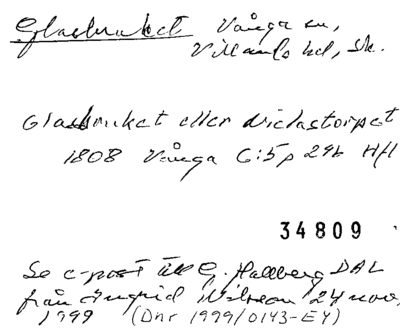 Glasbruket Vånga sn,
Villands hd, Sk.
Glasbruket eller Diclastorpet
1808 Vånga C:5 p 296 Hfl
34809
Se e-post till G. Hallberg DAL
från Ingrid Nilsson 24 nov,
1999 (Dnr 1999/0143-EY)